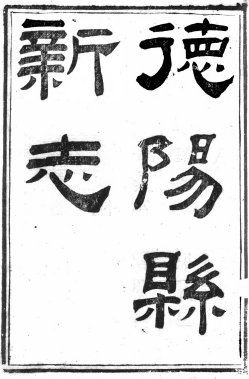 德陽縣
新志